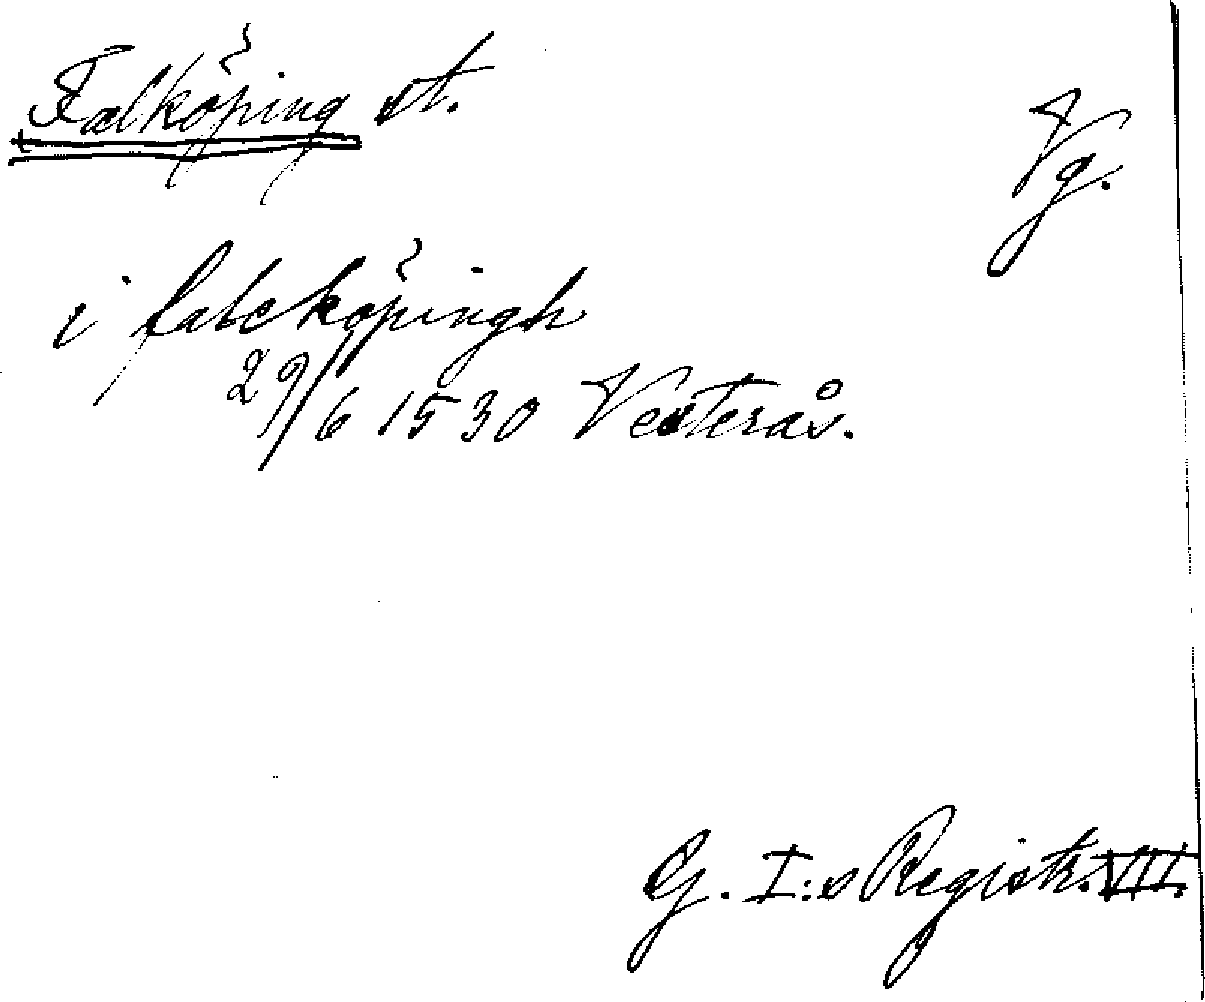 Falköping st.
Vg.
i falcköpingh
29/6 1530 Vesterås.
G. I:s Registr. VII.